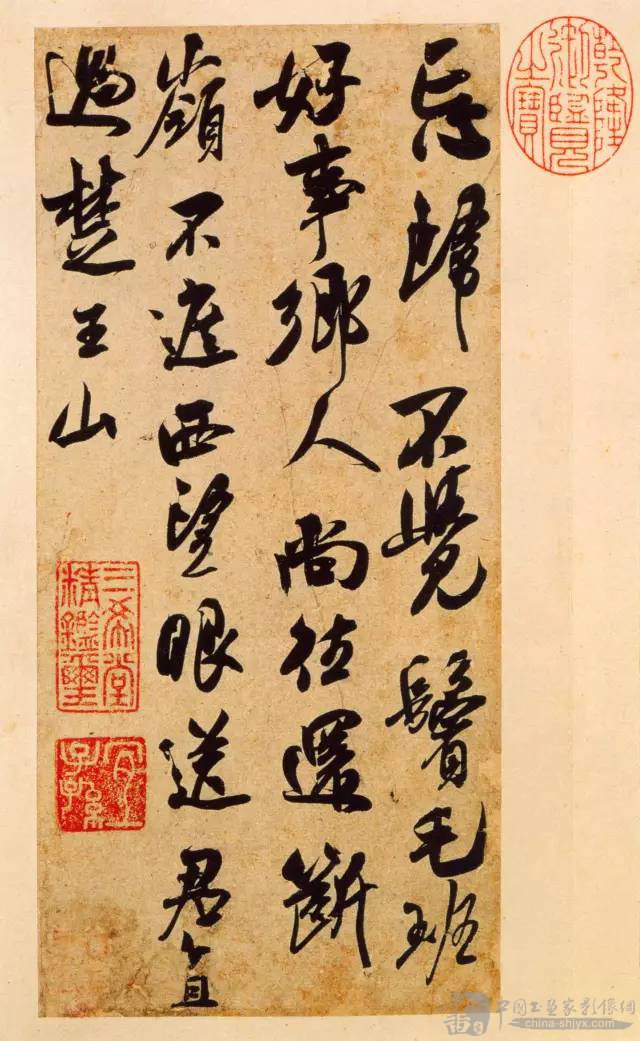 乾隆
御覽
之寶
忘歸不覺鬢毛班
好事鄉人尚往還斷
嶺不遮西望眼送君直
過楚王山
三希堂
精鑑璽
宜
子孫
中國书画家影像網
china-shjyx.com